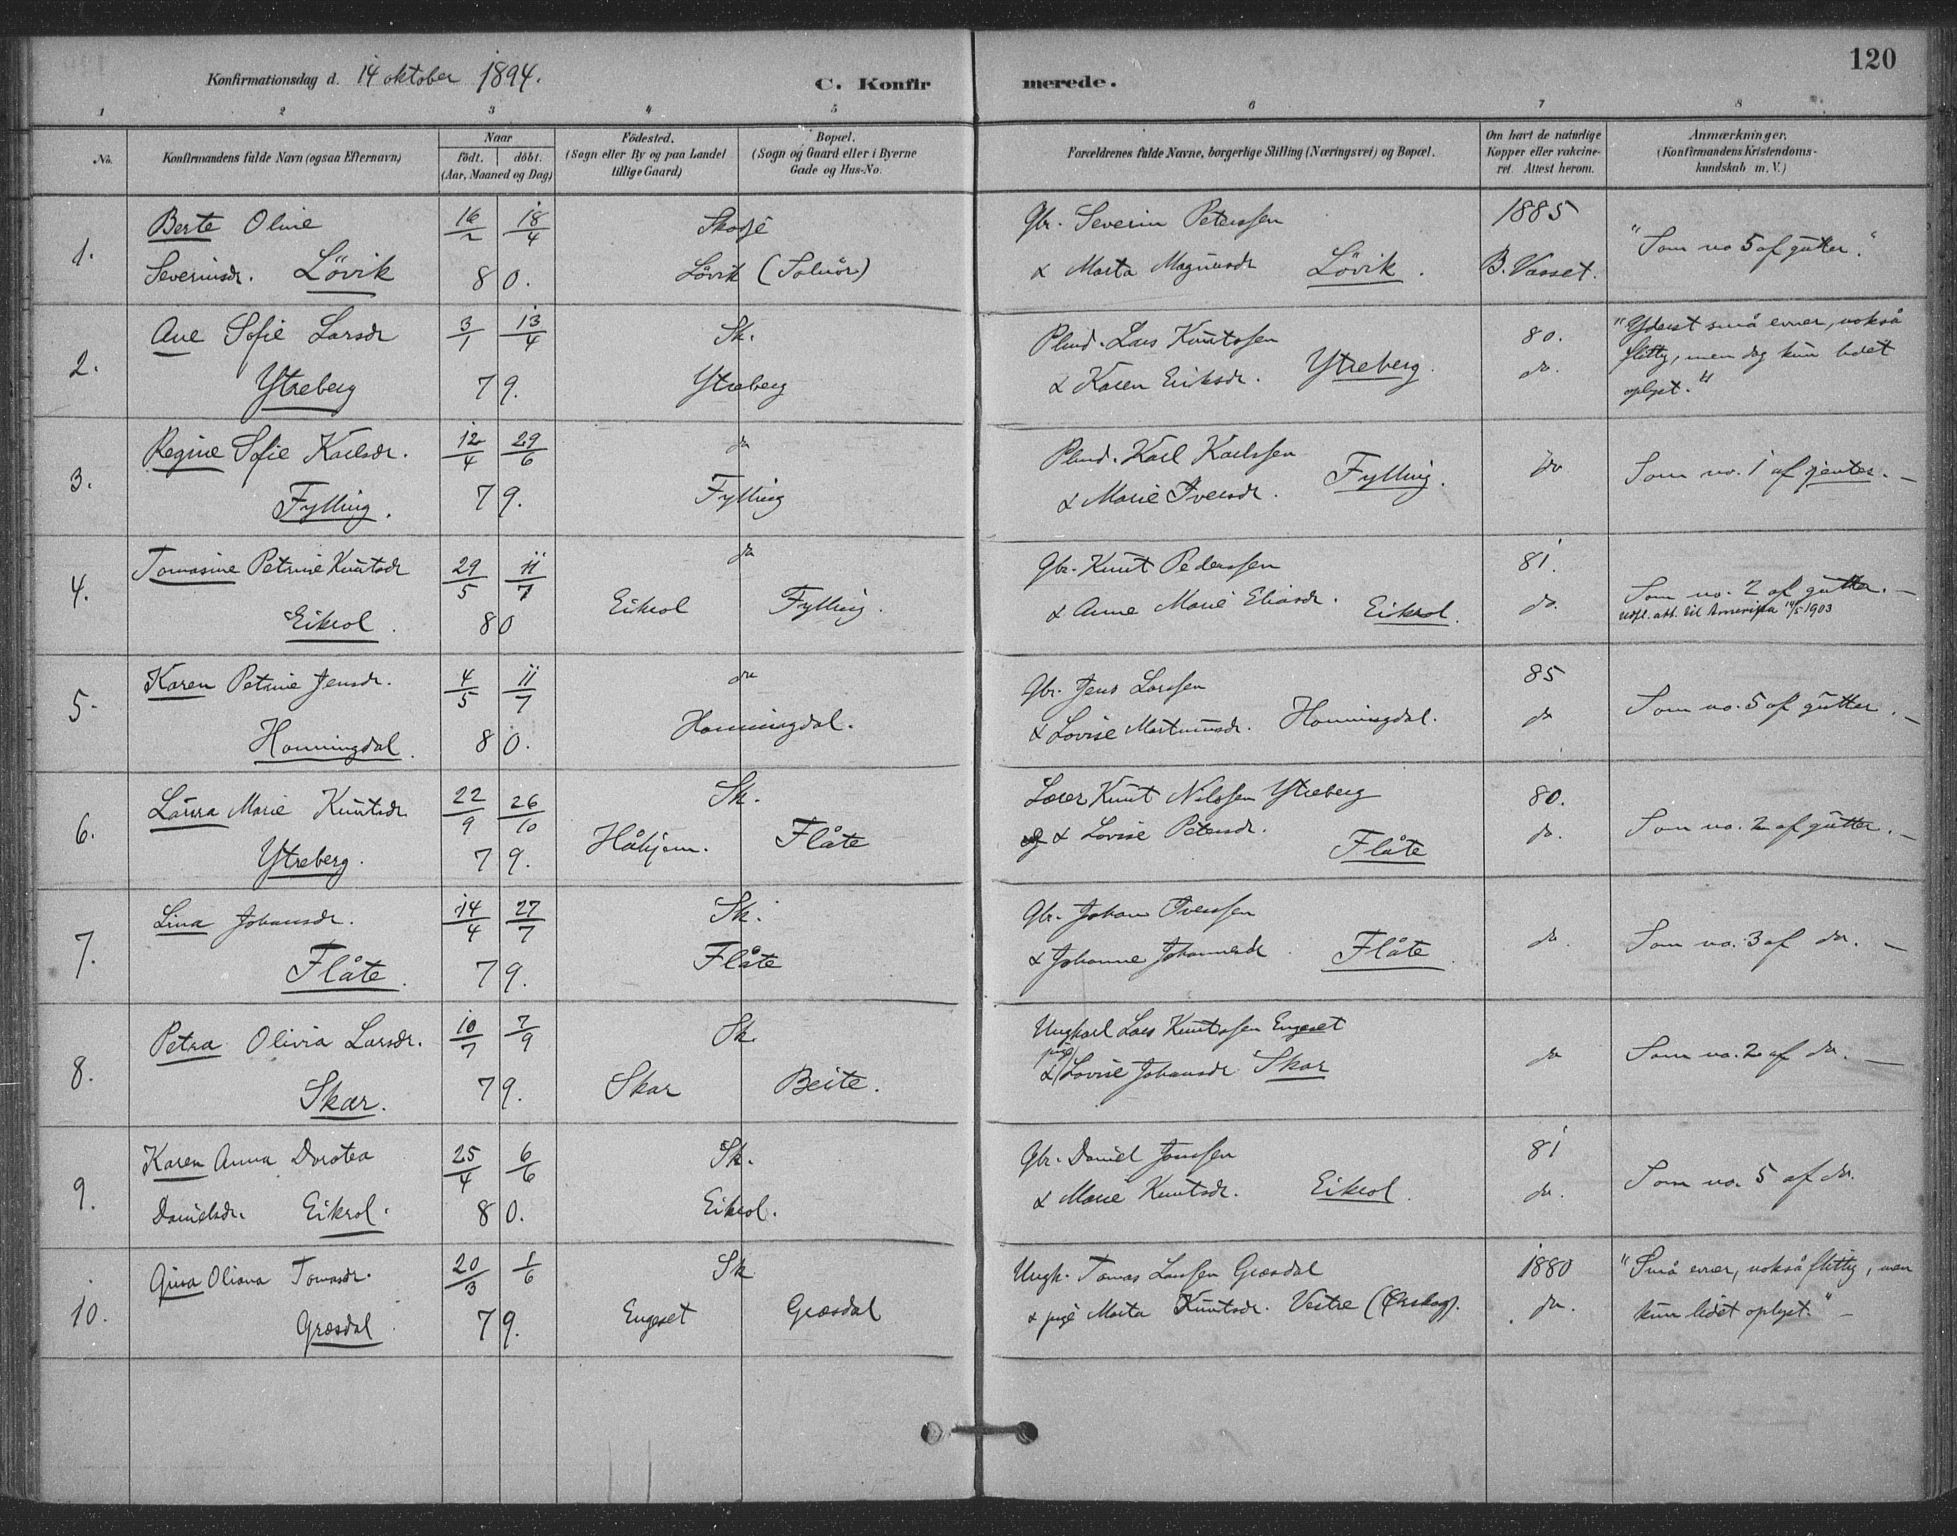 120
Konfirmationsdag d. 14 oktober 1894.
C. Konfir merede.
1 2 3 4 5 6 7 8
No.
Konfirmandens fulde Navn (ogsaa Efternavn)
Naar
födt. döbt.
(Aar, Maaned og Dag)
Födested.
(Sogn eller By og paa Landet
tillige Gaard)
Bopæl.
(Sogn og Gaard eller i Byerne
Gade og Hus-No.
Forældrenes fulde Navne, borgerlige Stilling (Næringsvei) og Bopæl.
Om havt de naturlige
Kopper eller vakcine-
ret. Attest herom.
Anmærkninger.
(Konfirmandens Kristendoms-
kundskab m. V.)
1. Berte Oline 16/2 18/4 Skodje Gbr. Severin Peterssen 1885 "Som no 5 af gutter."
Severinsdr. Lövik 80. Lövik (Solnör) & Marta Magnusdr Lövik. B. Vasset.
2. Ane Sofie Larsdr 3/1 13/4 Sk. Plmd. Lars Knutssen 80. "Yderst små evner, nokså
Ytreberg 79. Ytreberg & Karen Eriksdr. Ytreberg. do. flittig, men dog kun lidet
oplyst."
3. Regine Sofie Karlsdr. 12/4 29/6 do Plmd. Karl Karlssen do Som no. 1 af jenter. —
Fylling. 79. Fylling & Marie Iversdr. Fylling.
4. Tomasine Petrine Knutsdr 29/5 11/7 do Gbr. Knut Pederssen 81. Som no. 2 af gutter. —
Eikrol. 80 Eikrol Fylling. & Anne Marie Eliasdr. Eikrol. do. udfl. att. til Amerika 14/5 1903
5. Karen Petrine Jensdr. 4/5 11/7 do Gbr. Jens Larssen 85 Som no. 5 af gutter. —
Honningdal. 80. Honningdal. & Lovise Martinusdr. Honningdal. do
6. Laura Marie Knutsdr 22/9 26/10 Sk. Lærer Knut Nilssen Ytreberg 80. Som no. 2 af gutter. —
Ytreberg. 79. Håhjem. Flåte & Lovise Petersdr. Flåte do.
7. Lina Johansdr. 14/4 27/7 Sk. Gbr. Johan Iverssen do. Som no. 3 af do. —
Flåte. 79. Flåte & Johanne Johannesdr Flåte.
8. Petra Olivia Larsdr. 10/7 7/9 Sk. Ungkarl Lars Knutssen Engeset do Som no. 2 af do. —
Skar. 79. Skar Beite. & pige Lovise Johansdr. Skar
9. Karen Anna Dorotea 25/4 6/6 Sk. Gbr. Daniel Jonssen 81 Som no. 5 af do.
Danielsdr. Eikrol. 80. Eikrol. & Marie Knutsdr. Eikrol. do.
10. Gina Oliana Tomasdr. 20/3 1/6 Sk Ungk. Tomas Larssen Græsdal 1880 "Små evner, nokså flittig, men
Græsdal 79. Engeset Græsdal & pige Marta Knutsdr. Vestre (Ørskog). do. kun lidet oplyst." —